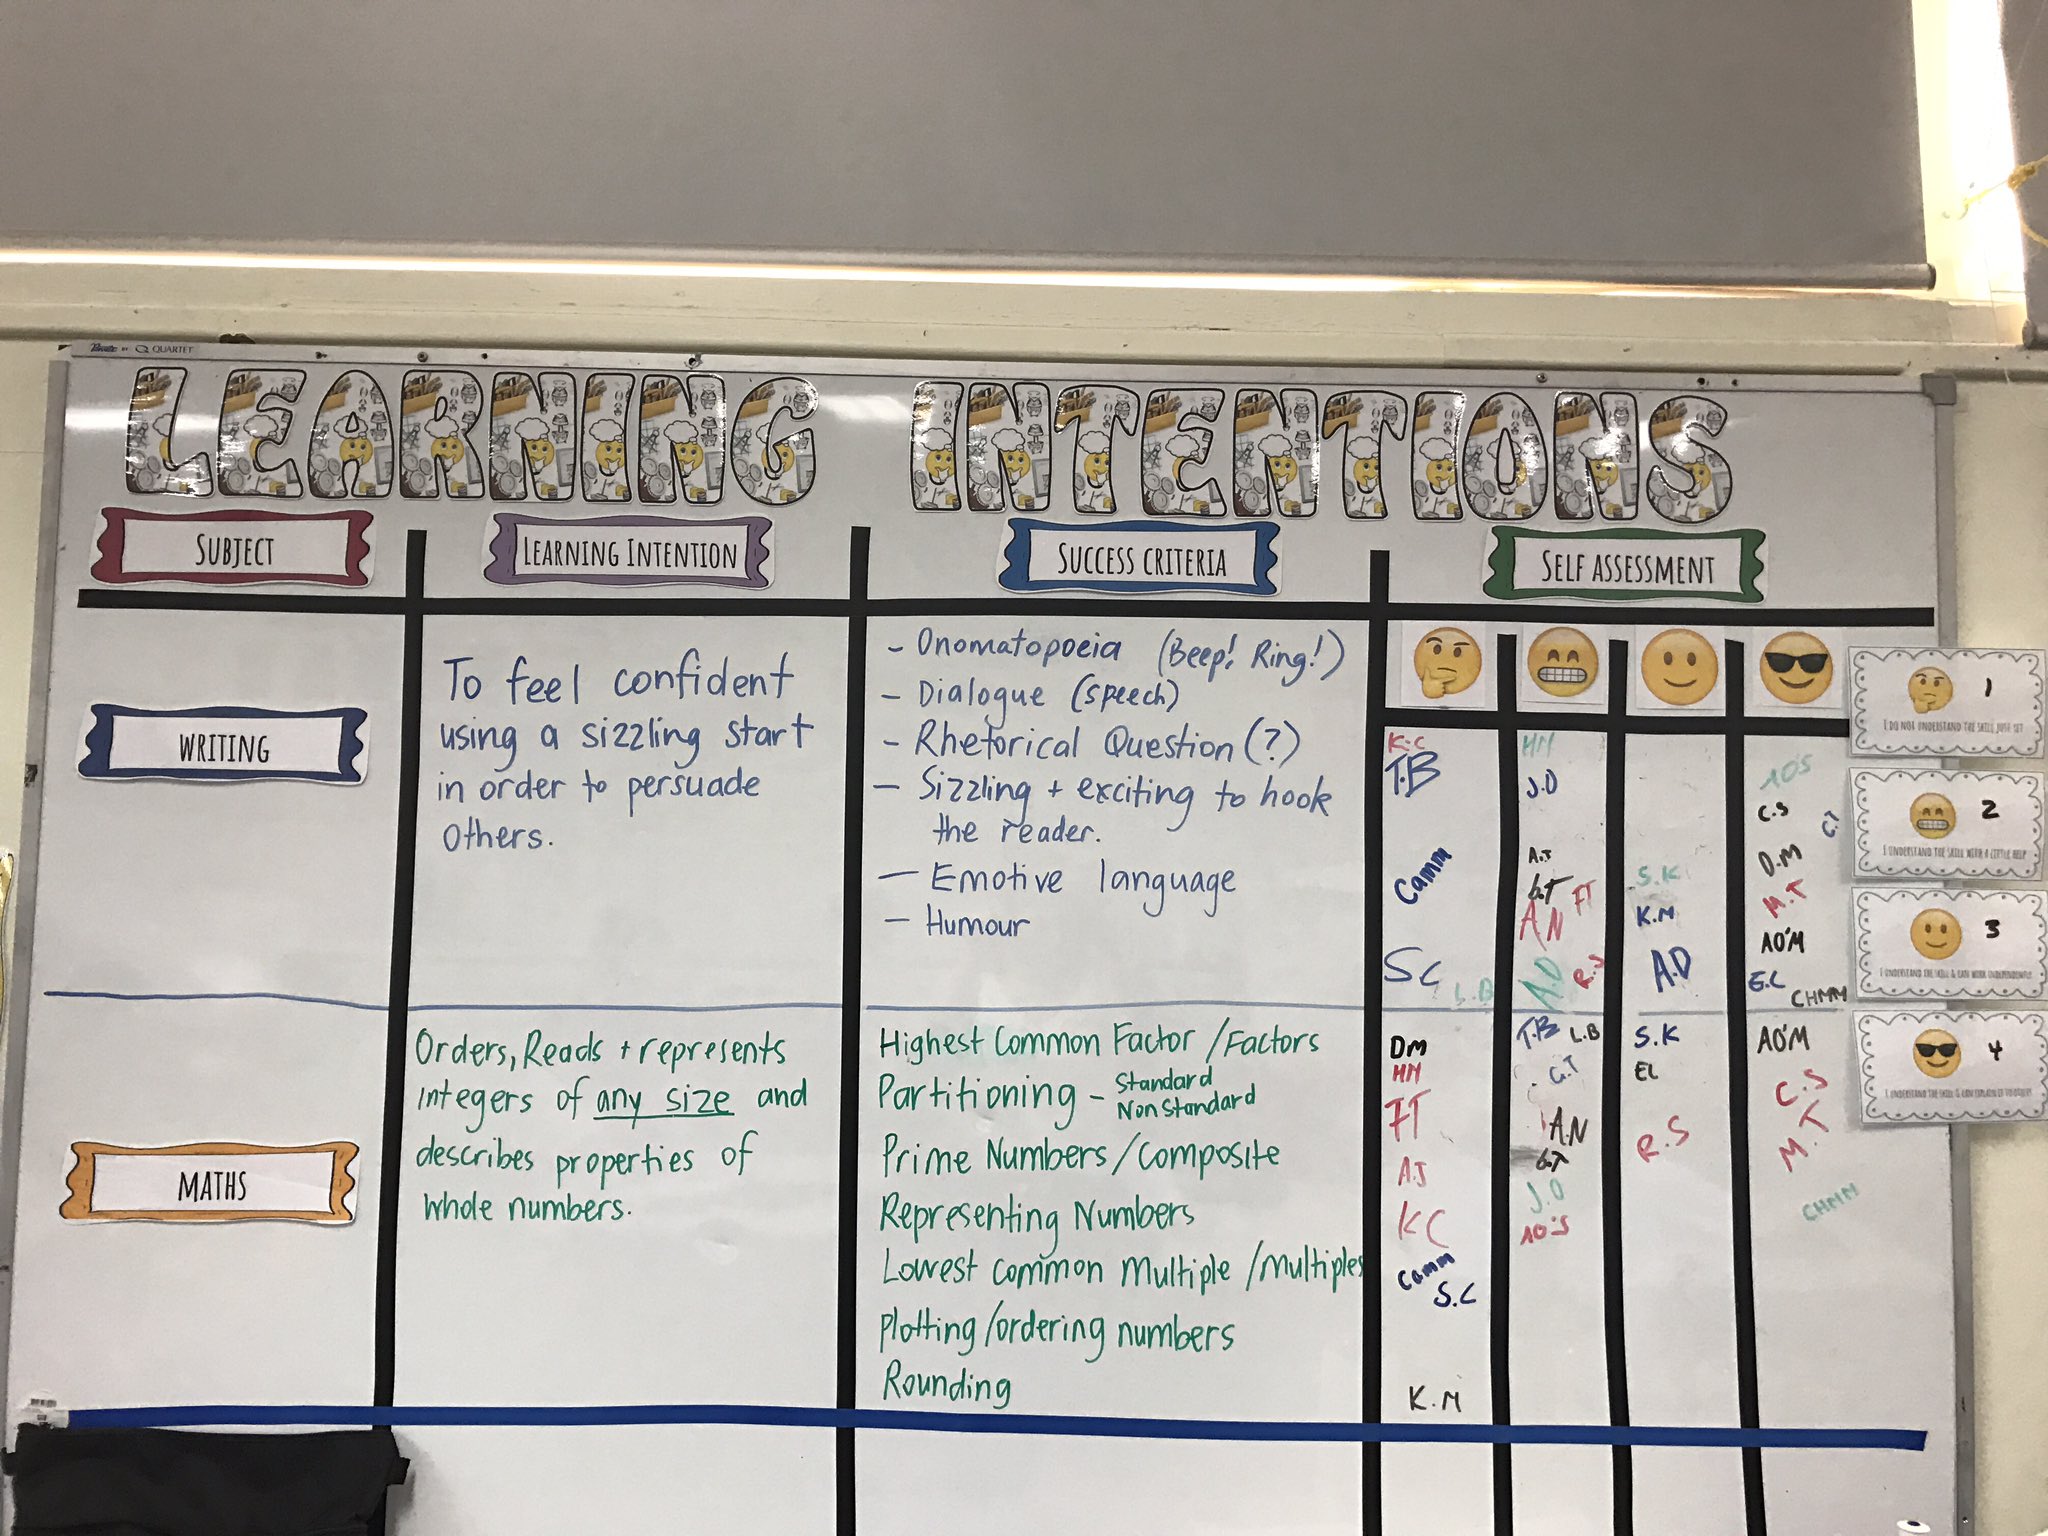 QUARTET
LEARNING INTENTIONS
SUBJECT
LEARNING INTENTION
SUCCESS CRITERIA
SELF ASSESSMENT
WRITING
To feel confident
using a sizzling start
in order to persuade
others.
- Onomatopoeia (Beep! Ring!)
- Dialogue (speech)
- Rhetorical Question (?)
- Sizzling + exciting to hook
the reader.
- Emotive language
- Humour
K.C
T.B
Camm
SC
L.B
HM
J.O
A.J
G.T
FT
A.N
A.D
R.S
S.K
K.M
A.D
AO'S
C.S
C.T
D.M
M.T
AO'M
E.C
CHMM
MATHS
Orders, Reads + represents
integers of any size and
describes properties of
whole numbers.
Highest Common Factor / Factors
Partitioning - Standard
Non Standard
Prime Numbers / Composite
Representing Numbers
Lowest common Multiple / Multiples
plotting / ordering numbers
Rounding
DM
HM
FT
A.J
KC
Camm
S.C
K.M
T.B
L.B
G.T
A.N
G.T
J.O
AO'S
S.K
EL
R.S
AO'M
C.S
M.T
CHMM
1
I DO NOT UNDERSTAND THE SKILL JUST YET
2
I UNDERSTAND THE SKILL WITH A LITTLE HELP
3
I UNDERSTAND THE SKILL & CAN WORK INDEPENDENTLY
4
I UNDERSTAND THE SKILL & CAN EXPLAIN IT TO OTHERS